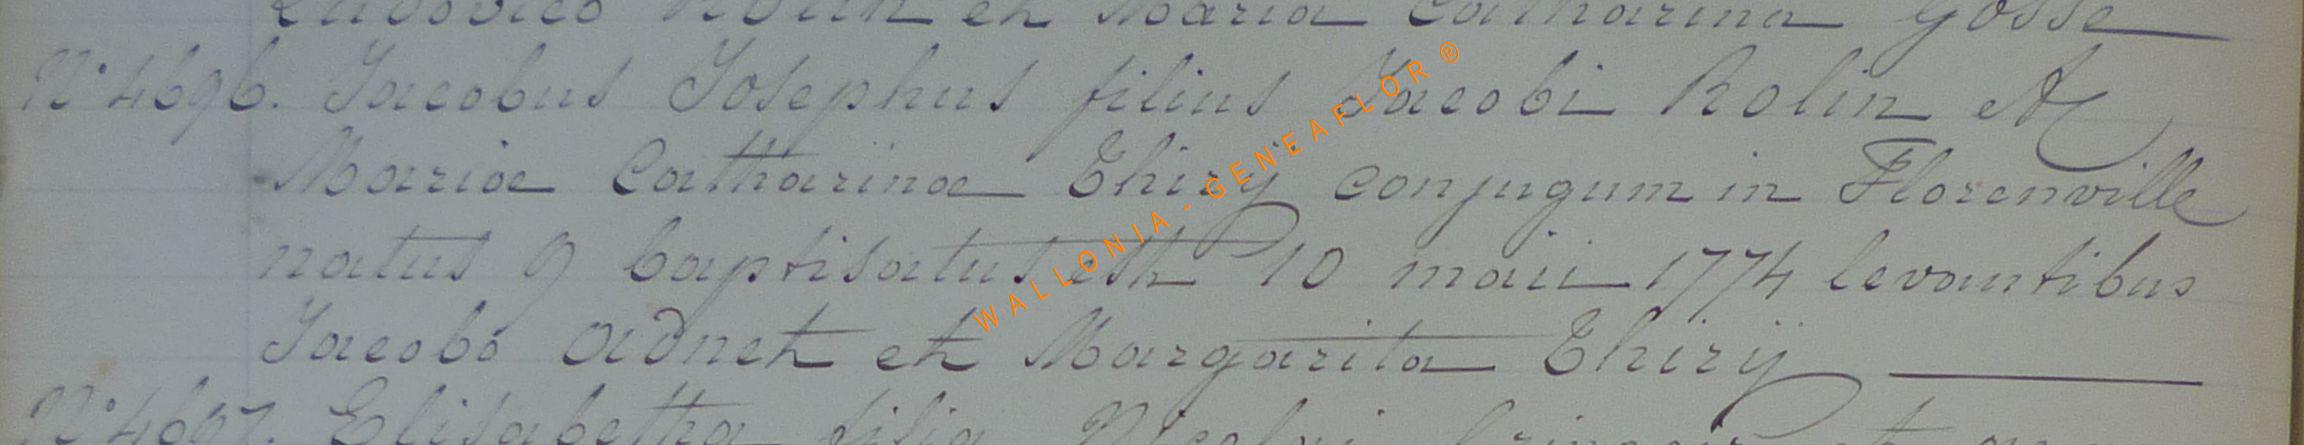 Ludovico Rolin et Maria Catharina Gosse
N° 4696. Jacobus Josephus filius Jacobi Rolin et
Mariae Catharinae Thirÿ conjugum in Florenville
natus 9 baptisatus est 10 maii 1774 levantibus
Jacobo adnet et Margarita Thirÿ
N° 4697. Elisabetha filia Nicolai
WALLONIA - GENEAFLOR®